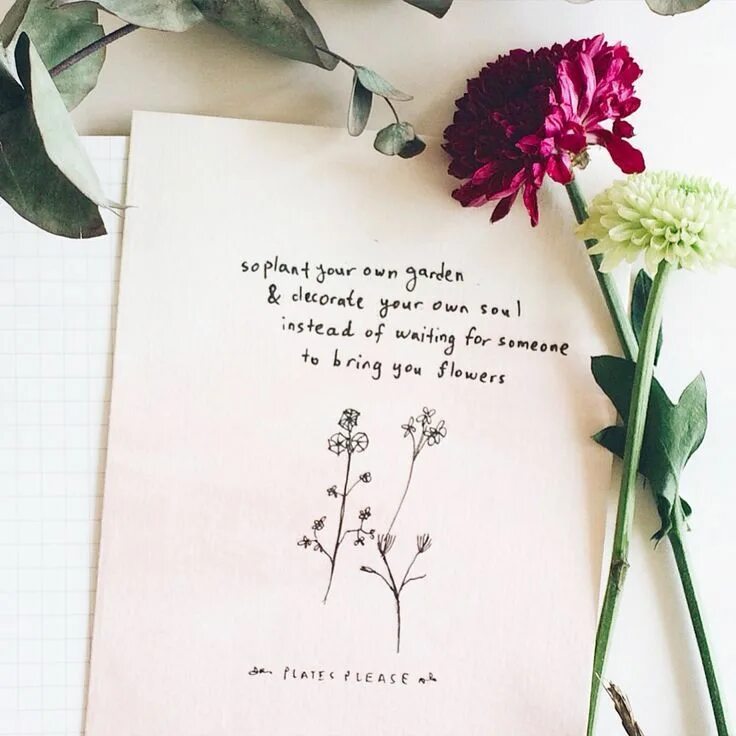 so plant your own garden
& decorate your own soul
instead of waiting for someone
to bring you flowers
PLATES PLEASE